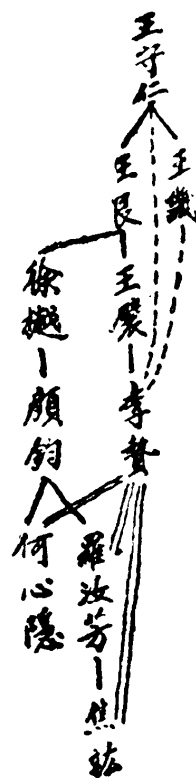 王守仁
王艮
王畿
徐樾
王襞
李贄
顏鈞
何心隱
羅汝芳
焦竑